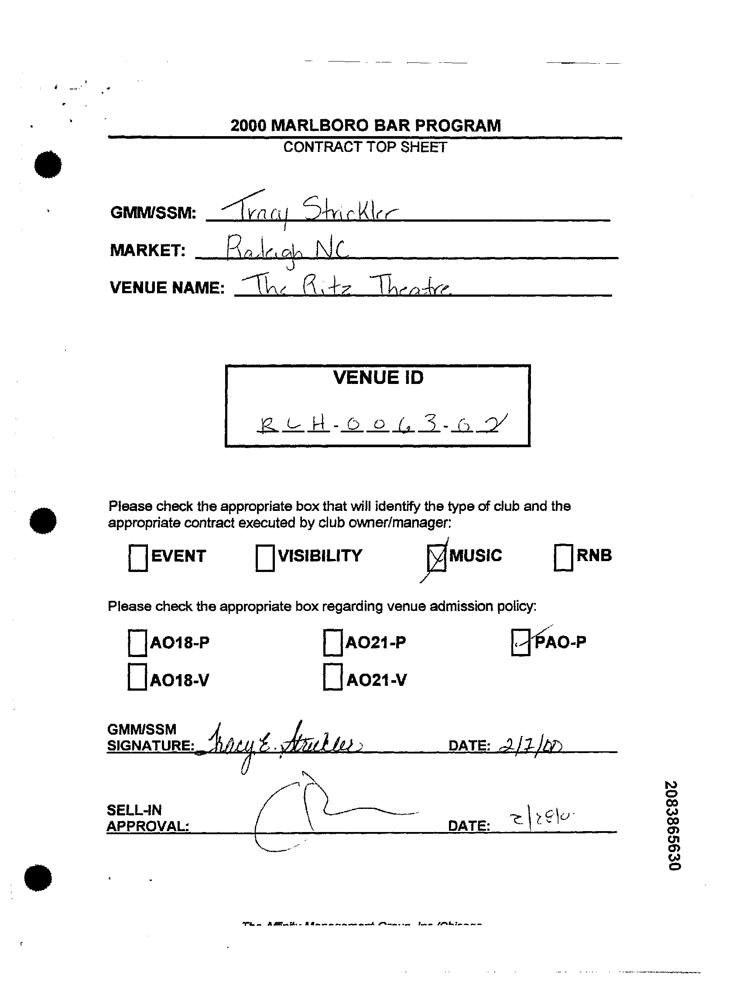 2000 MARLBORO BAR PROGRAM
CONTRACT TOP SHEET
GMM/SSM: Tracy Strickler
MARKET: Raleigh NC
VENUE NAME: The Ritz Theatre
VENUE ID
RLH-0063-02
Please check the appropriate box that will identify the type of club and the
appropriate contract executed by club owner/manager:
EVENT VISIBILITY MUSIC RNB
Please check the appropriate box regarding venue admission policy:
AO18-P AO21-P PAO-P
AO18-V AO21-V
GMM/SSM
SIGNATURE: Tracy E. Strickler DATE: 2/7/00
SELL-IN
APPROVAL: DATE:
2083865630
The Affinity Management Group, Inc./Chicago